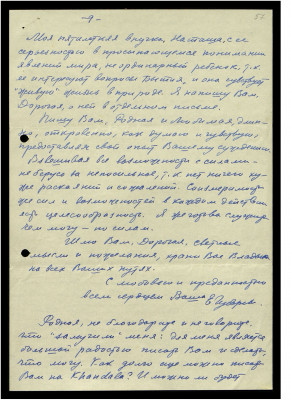 - 9 -
Моя пятилетняя внучка, Наташа, с ее
серьезностью в
явлений мира, не ординарный ребенок, т.к.
ее интересуют вопросы Бытия, и она чувствует
"живую" жизнь в природе. Я напишу Вам,
Дорогая, о ней в отдельном письме.
Пишу Вам, Родная и Любимая, длин-
но, откровенно, как думаю и чувствую,
предоставляя свой опыт Вашему суждению.
Взвешивая все возможности с силами -
не берусь за непосильное, т.к. нет ничего ху-
же раскаяния и сожалений. Соизмеримость
сил и возможностей в каждом действии
есть целесообразность. Я же готова служить
чем могу - по силам.
Шлю Вам, Дорогая, светлые
мысли и пожелания, храни Вас Владыка
на всех Ваших путях.
С любовью и преданностью
всем сердцем Ваша
Родная, не благодарите и не говорите,
что "замучили" меня: для меня является
большой радостью писать Вам и сделать,
что могу. Как долго еще можно писать
Вам на Khandala? И можно ли будет